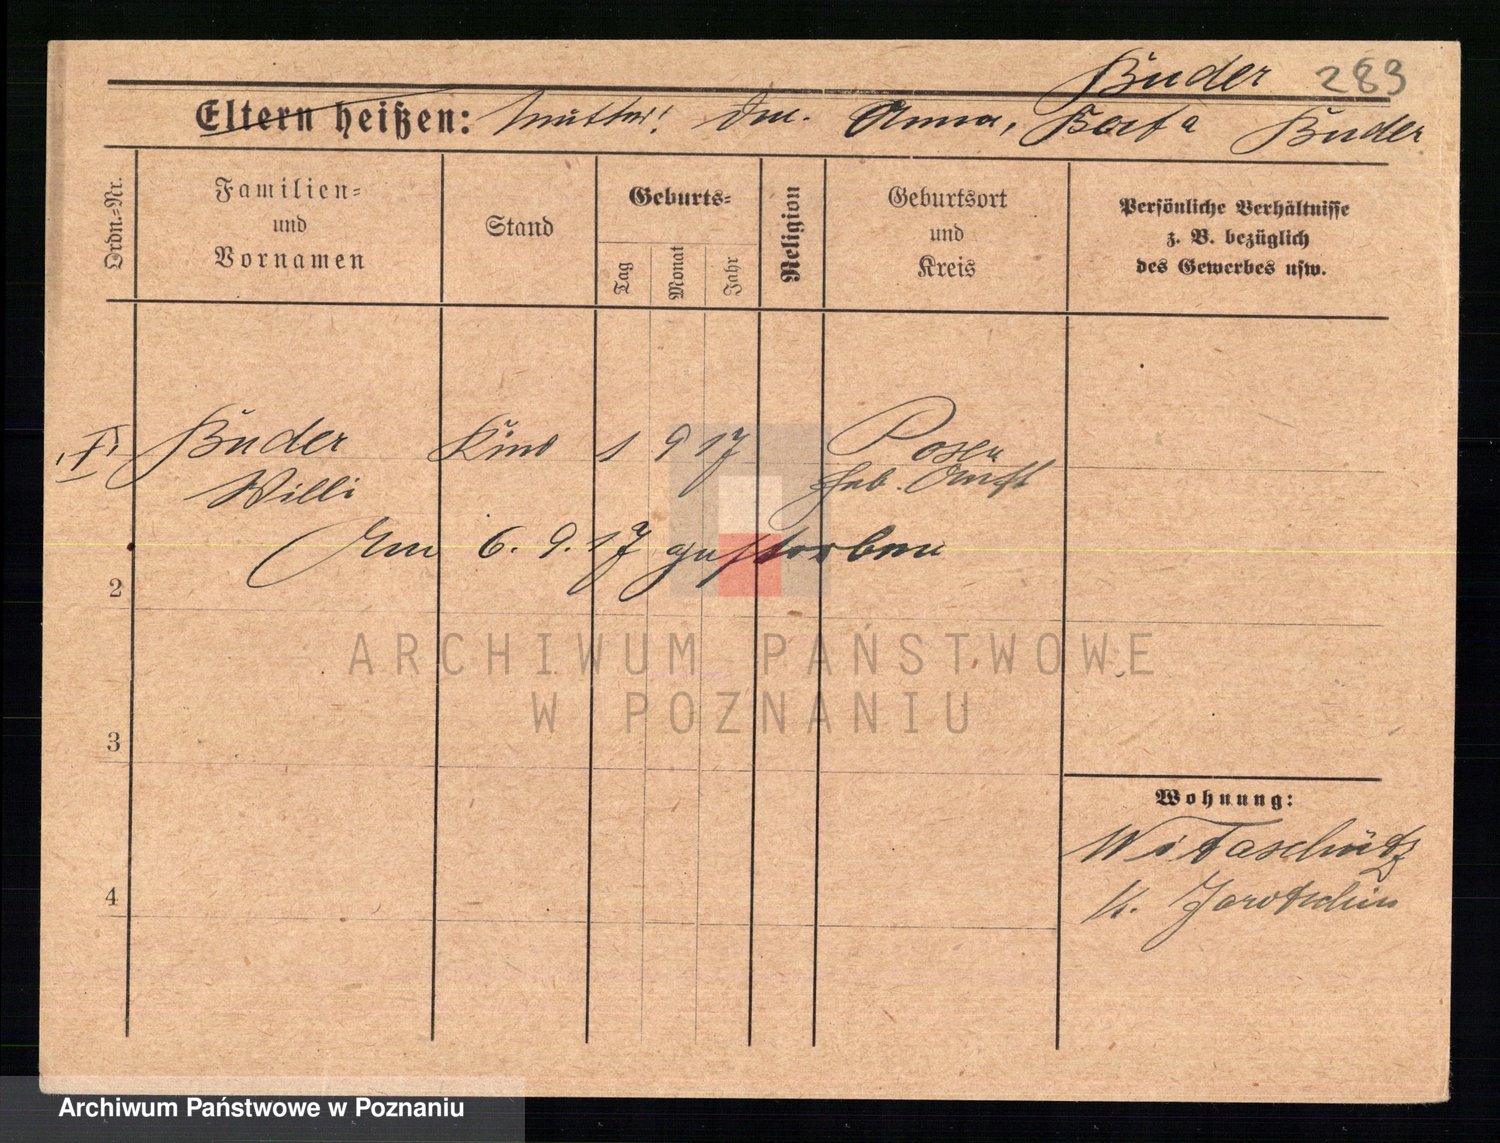 Buder 283
Eltern heißen: Mutter: Anna, Berta Buder
Ordn.=Nr.
Familien= und Vornamen
Stand
Geburts=
Tag
Monat
Jahr
Religion
Geburtsort und Kreis
Persönliche Verhältnisse z. B. bezüglich des Gewerbes usw.
I Buder Kind 1 9 17 Posen
Willi Heb. Anst
Am 6. 9. 17 gestorben
2
3
4
Wohnung:
Witaschütz
K. Jarotschin
ARCHIWUM PAŃSTWOWE
W POZNANIU
Archiwum Państwowe w Poznaniu